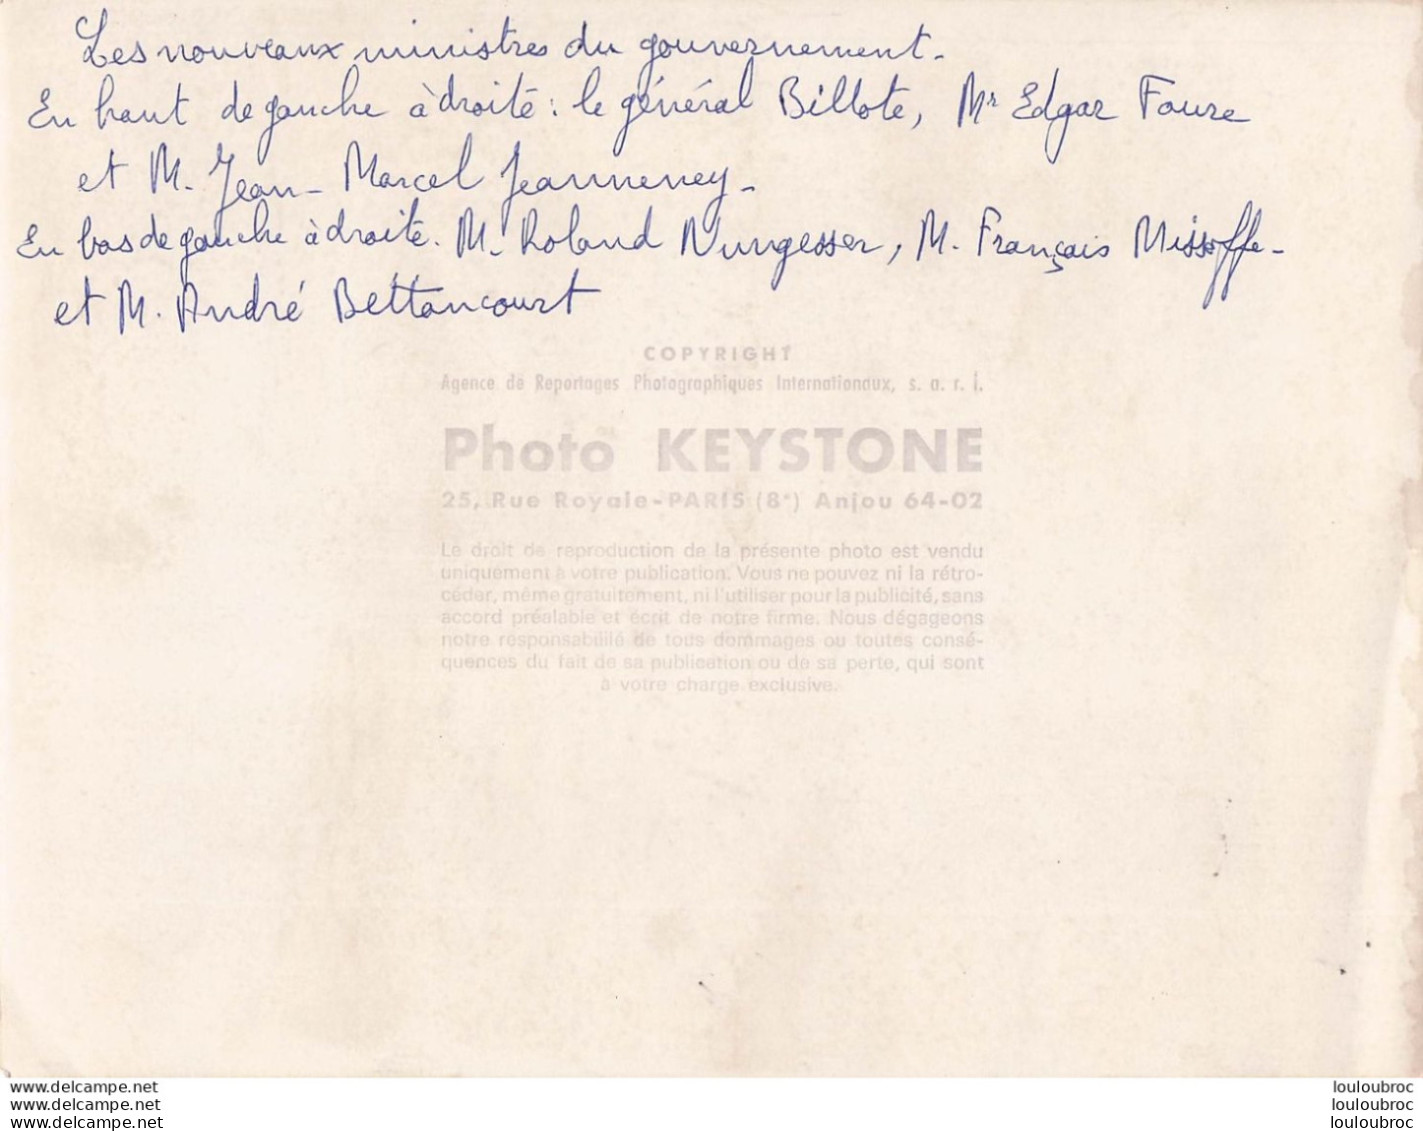 Les nouveaux ministres du gouvernement.
En haut de gauche à droite : le général Billote, Mr Edgar Faure
et M. Jean-Marcel Jeanneney-
En bas de gauche à droite. M. Roland Nungesser, M. François Missoffe-
et M. André Bettancourt
COPYRIGHT
Agence de Reportages Photographiques Internationaux, s. a. r. l.
Photo KEYSTONE
25, Rue Royale-PARIS (8e) Anjou 64-02
Le droit de reproduction de la présente photo est vendu
uniquement à votre publication. Vous ne pouvez ni la rétro-
céder, même gratuitement, ni l'utiliser pour la publicité, sans
accord préalable et écrit de notre firme. Nous dégageons
notre responsabilité de tous dommages ou toutes consé-
quences du fait de sa publication ou de sa perte, qui sont
à votre charge exclusive.
delcampe.net
delcampe.net
delcampe.net
louloubroc
louloubroc
louloubroc